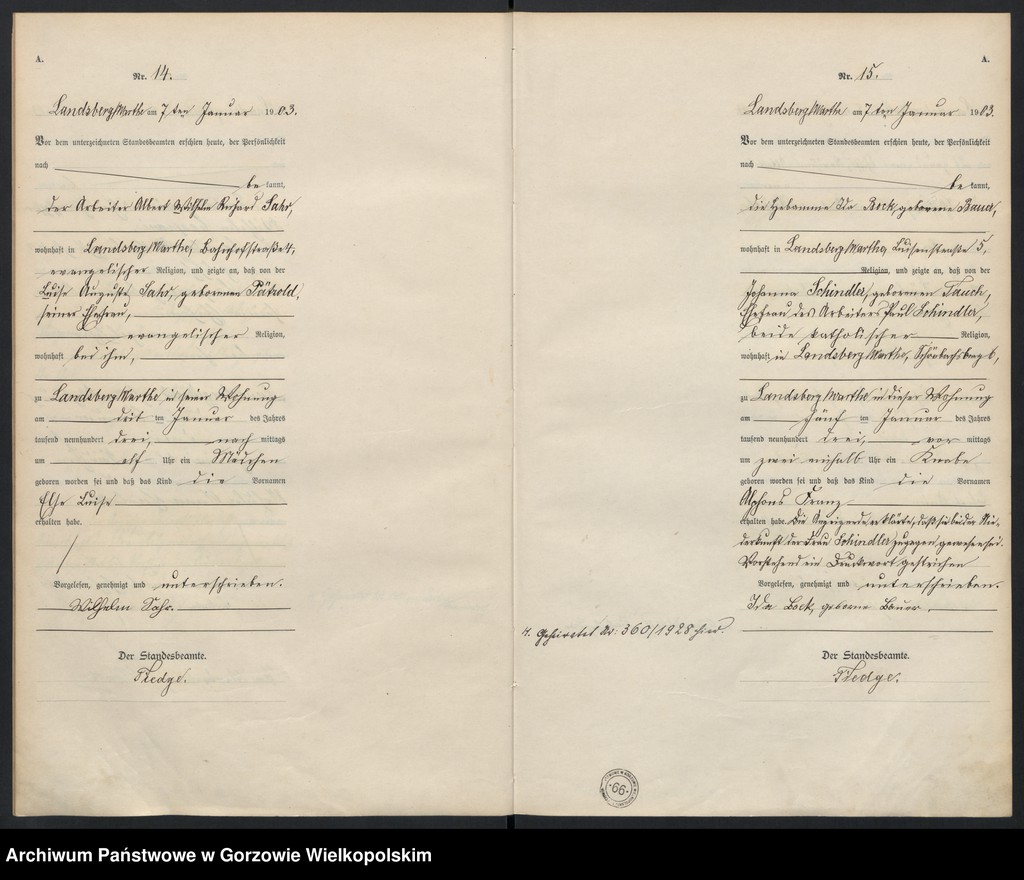 A.
Nr. 14.
Landsberg/Warthe am 7 ten Januar 1903.
Vor dem unterzeichneten Standesbeamten erschien heute, der Persönlichkeit
nach
be kannt,
der Arbeiter Albert Wilhelm Richard Sahr,
wohnhaft in Landsberg/Warthe, Bahnhofstraße 4,
evangelischer Religion, und zeigte an, daß von der
Luise Auguste Sahr, geborenen Pätzold,
seiner Ehefrau,
evangelischer Religion,
wohnhaft bei ihm,
zu Landsberg/Warthe in seiner Wohnung
am drit ten Januar des Jahres
tausend neunhundert drei, nach mittags
um elf Uhr ein Mädchen
geboren worden sei und daß das Kind die Vornamen
Else Luise
erhalten habe.
Vorgelesen, genehmigt und unterschrieben.
Wilhelm Sahr.
Der Standesbeamte.
Tiedge.
A.
Nr. 15.
Landsberg/Warthe am 7 ten Januar 1903.
Vor dem unterzeichneten Standesbeamten erschien heute, der Persönlichkeit
nach
be kannt,
die Hebamme Ida Bock, geborene Bauer,
wohnhaft in Landsberg/Warthe, Luisenstraße 5,
Religion, und zeigte an, daß von der
Johanna Schindler, geborenen Tauch,
Ehefrau des Arbeiters Paul Schindler,
beide katholischer Religion,
wohnhaft in Landsberg/Warthe, 6,
zu Landsberg/Warthe in dieser Wohnung
am fünf ten Januar des Jahres
tausend neunhundert drei, vor mittags
um zwei einhalb Uhr ein Knabe
geboren worden sei und daß das Kind die Vornamen
Alphons Franz
erhalten habe. Die Anzeigende erklärte, daß sie bei der Nie-
derkunft der Frau Schindler zugegen gewesen sei.
Vorstehend ein Druckwort gestrichen
Vorgelesen, genehmigt und unterschrieben.
Ida Bock, geborne Bauer.
Geheiratet Nr: 360/1928 hier.
Der Standesbeamte.
Tiedge.
66
Archiwum Państwowe w Gorzowie Wielkopolskim